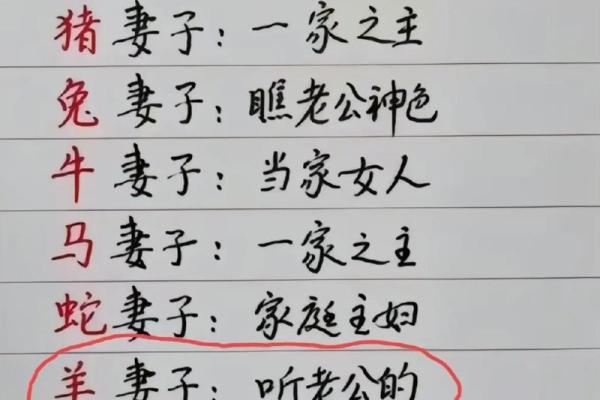 猪妻子：一家之主
兔妻子：瞧老公神色
牛妻子：当家女人
马妻子：一家之主
蛇妻子：家庭主妇
羊妻子：听老公的